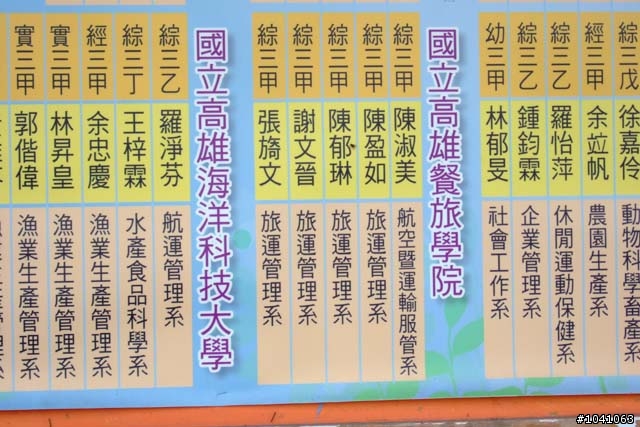 綜三戊 徐嘉伶 動物科學畜產系
經三甲 余竝帆 農園生產系
綜三乙 羅怡萍 休閒運動保健系
經三乙 鍾鈞霖 企業管理系
幼三甲 林郁旻 社會工作系
國立高雄餐旅學院
綜三甲 陳淑美 航空暨運輸服管系
綜三甲 陳盈如 旅運管理系
綜三甲 陳郁琳 旅運管理系
綜三甲 謝文晉 旅運管理系
綜三甲 張旖文 旅運管理系
國立高雄海洋科技大學
綜三乙 羅淨芬 航運管理系
綜三丁 王梓霖 水產食品科學系
經三甲 余忠慶 漁業生產管理系
實三甲 林昇皇 漁業生產管理系
實三甲 郭偕偉 漁業生產管理系
#1041063